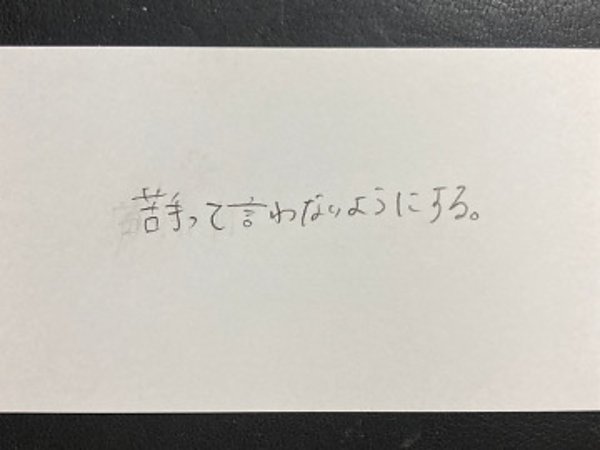 苦手って言わないようにする。